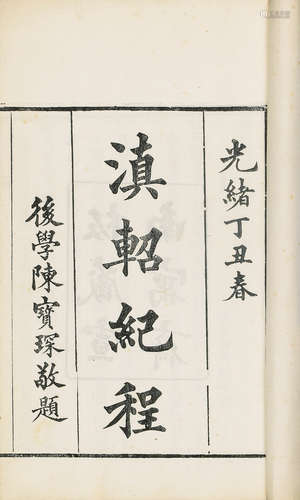 光緒丁丑春
滇軺紀程
後學陳寶琛敬題